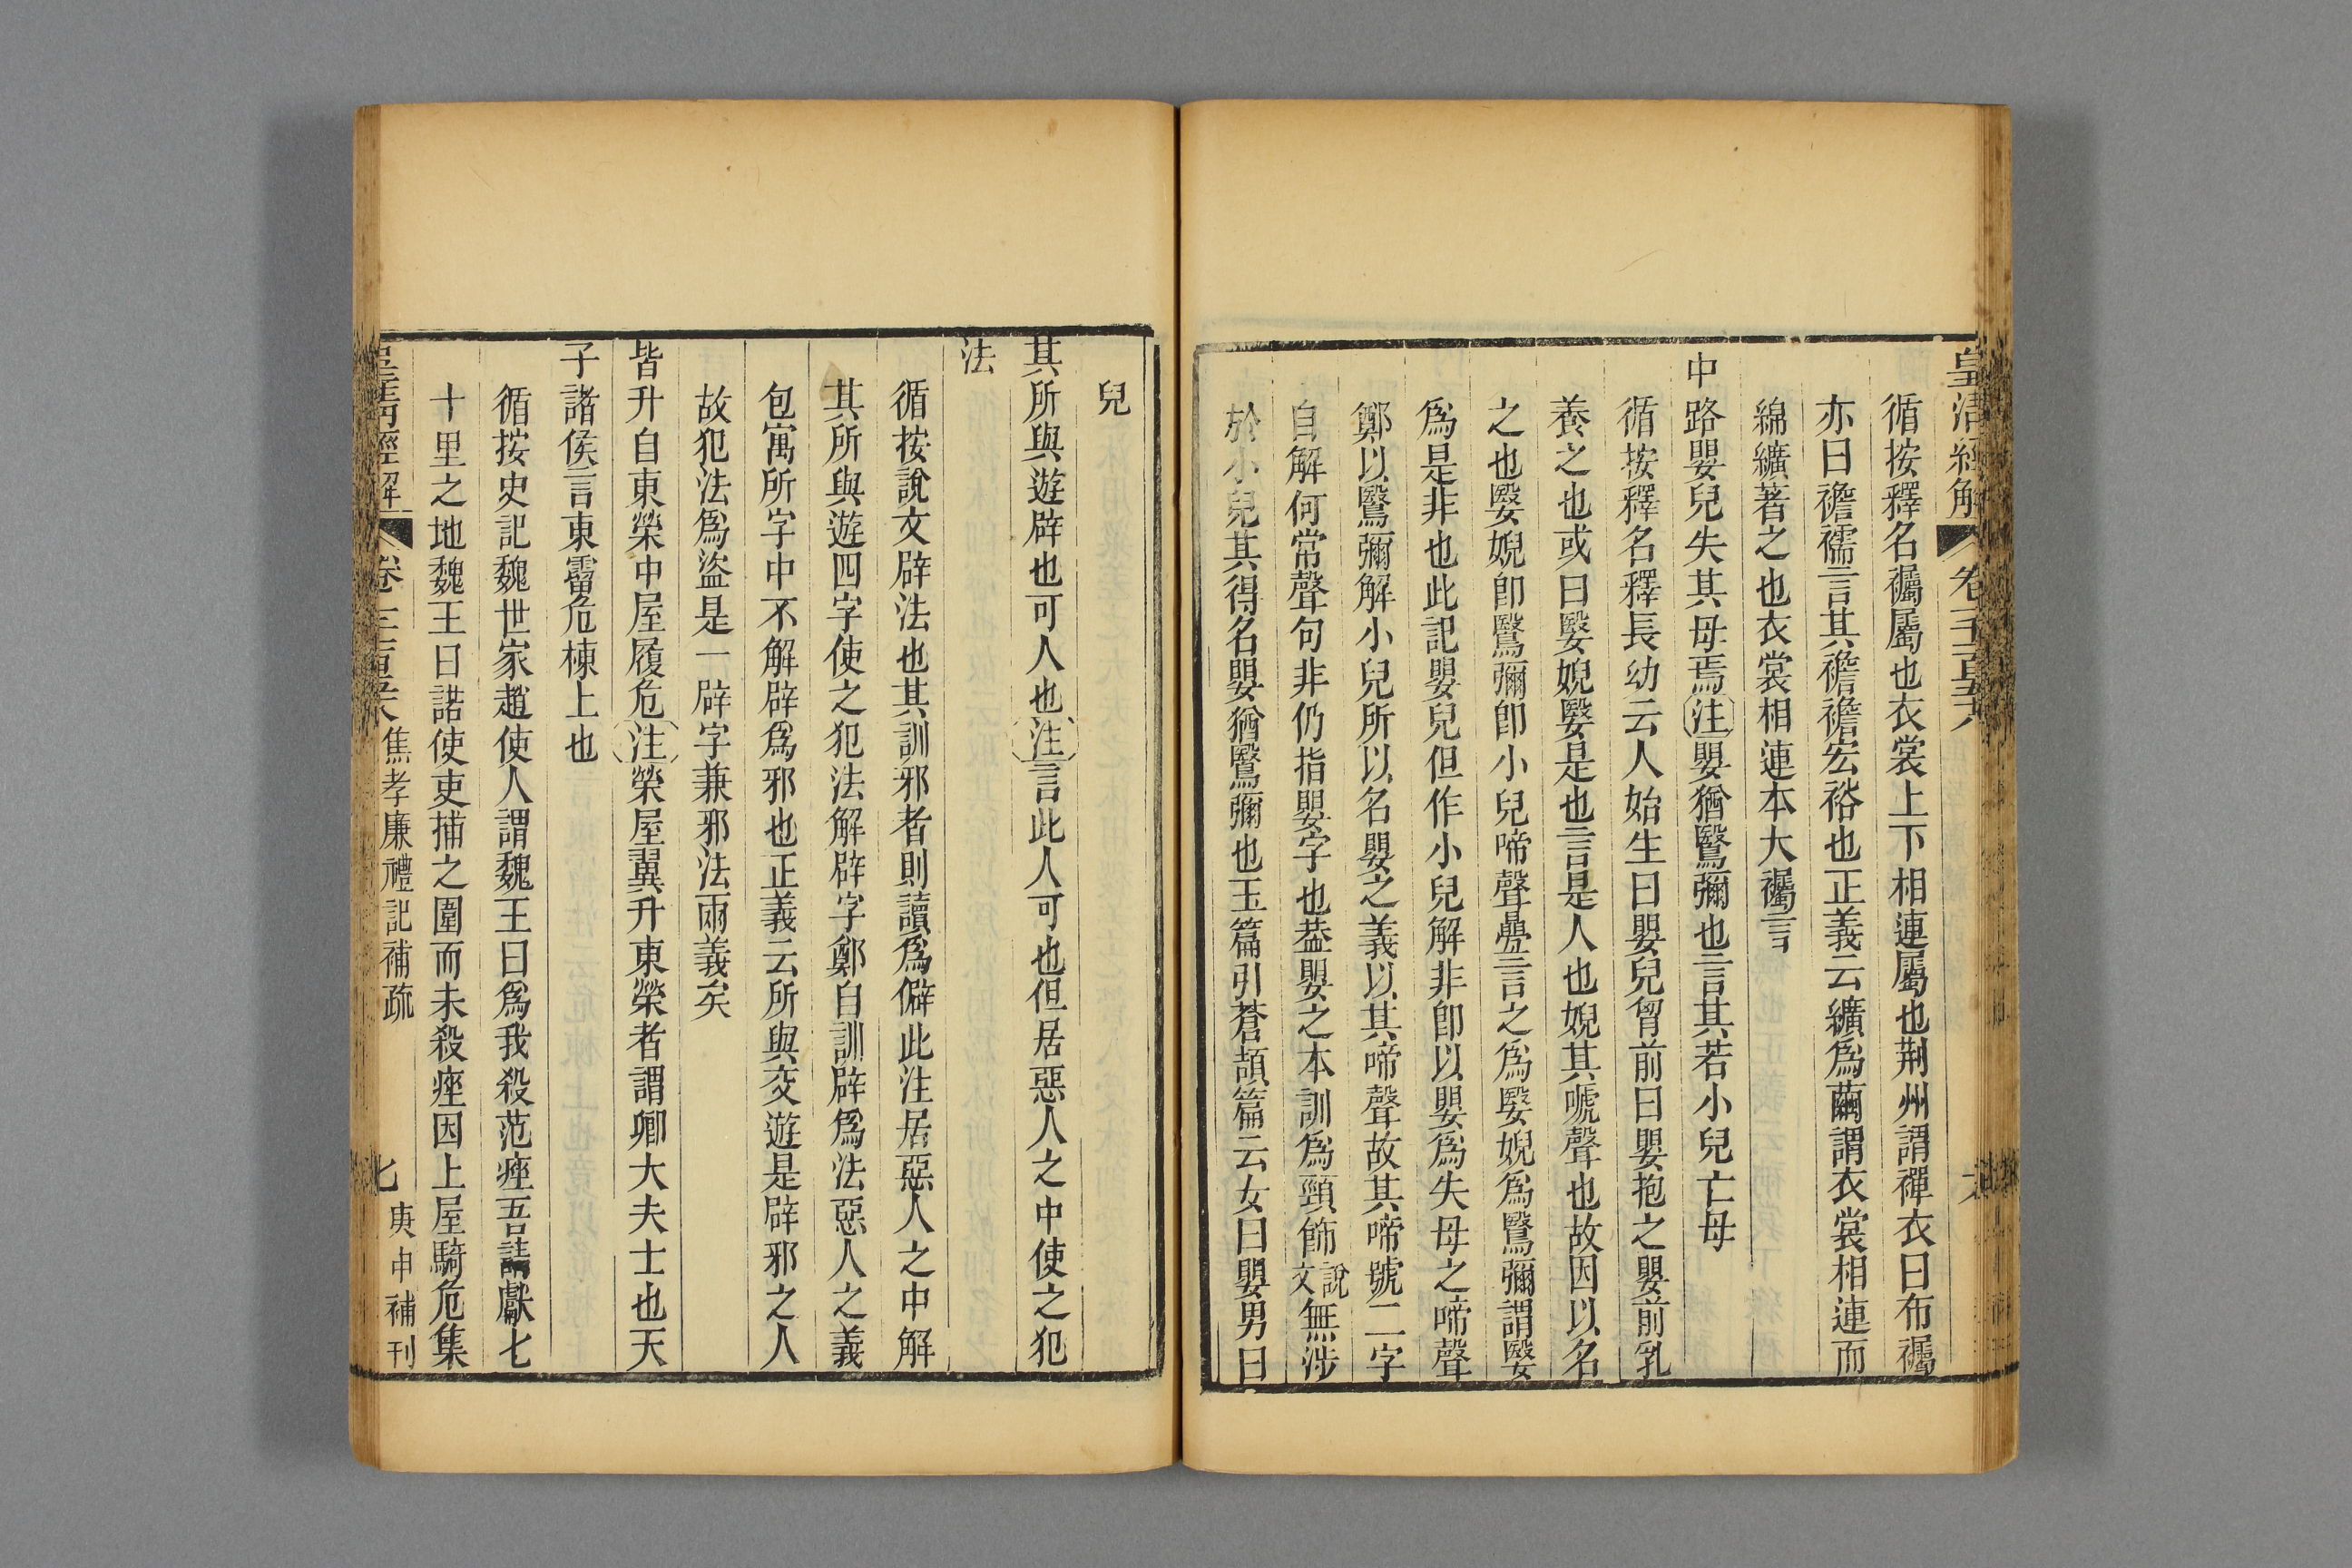 皇清經解 卷千百五十六 六
循按釋名襡屬也衣裳上下相連屬也荆州謂禪衣曰布襡
亦曰襜襦言其襜襜宏裕也正義云纊爲繭謂衣裳相連而
綿纊著之也衣裳相連本大襡言
中路嬰兒失其母焉注嬰猶鷖彌也言其若小兒亡母
循按釋名釋長幼云人始生曰嬰兒胷前曰嬰抱之嬰前乳
養之也或曰嫛婗嫛是也言是人也婗其嗁聲也故因以名
之也嫛婗卽鷖彌卽小兒啼聲疊言之爲嫛婗爲鷖彌謂嫛
爲是非也此記嬰兒但作小兒解非卽以嬰爲失母之啼聲
鄭以鷖彌解小兒所以名嬰之義以其啼聲故其啼號二字
自解何常聲句非仍指嬰字也葢嬰之本訓爲頸飾說文無涉
於小兒其得名嬰猶鷖彌也玉篇引蒼頡篇云女曰嬰男曰
兒
其所與遊辟也可人也注言此人可也但居惡人之中使之犯
法
循按說文辟法也其訓邪者則讀爲僻此注居惡人之中解
其所與遊四字使之犯法解辟字鄭自訓辟爲法惡人之義
包寓所字中不解辟爲邪也正義云所與交遊是辟邪之人
故犯法爲盜是一辟字兼邪法兩義矣
皆升自東榮中屋履危注榮屋翼升東榮者謂卿大夫士也天
子諸侯言東霤危棟上也
循按史記魏世家趙使人謂魏王曰爲我殺范痤吾請獻七
十里之地魏王曰諾使吏捕之圍而未殺痤因上屋騎危集
皇清經解 卷 焦孝廉禮記補疏 七 庚申補刊